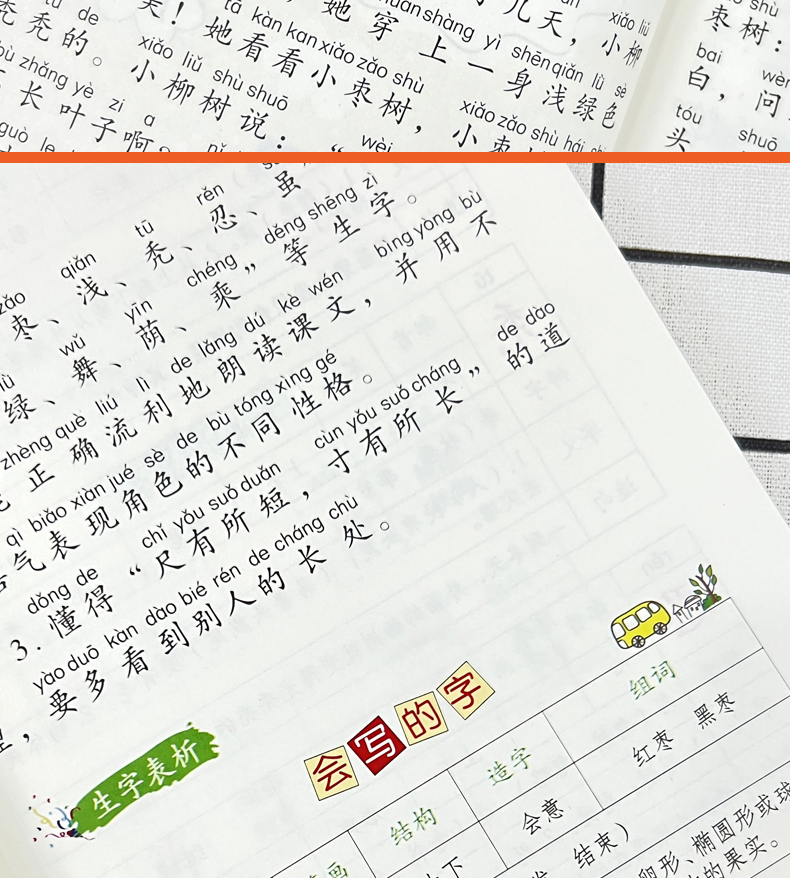 tū de
秃秃的。
她 穿 上 一 身 浅 绿 色
shàng yì shēn qiǎn lǜ sè
几天，小柳
xiǎo liǔ
tā kàn kan xiǎo zǎo shù
她看看小枣树，
xiǎo liǔ shù shuō
小柳树说：“
zhǎng yè zi a
长叶子啊
xiǎo zǎo shù hái
枣树：
bai wèn
白，问
tóu shuō
头
zǎo qiǎn tū rěn
枣、浅、秃、忍、虽
lǜ wǔ yīn chéng děng shēng zì
绿、舞、荫、乘”等生字。
zhèng què liú lì de lǎng dú kè wén bìng yòng bù
正确流利地朗读课文，并用不
qì biǎo xiàn jué sè de bù tóng xìng gé
气表现角色的不同性格。
dǒng de chǐ yǒu suǒ duǎn cùn yǒu suǒ cháng de dào
3. 懂得“尺有所短，寸有所长”的道
yào duō kàn dào bié rén de cháng chù
，要多看到别人的长处。
生字表析
会写的字
结构 造字 组词
会意 红枣 黑枣
结束）
卵形、椭圆形或球
的果实。